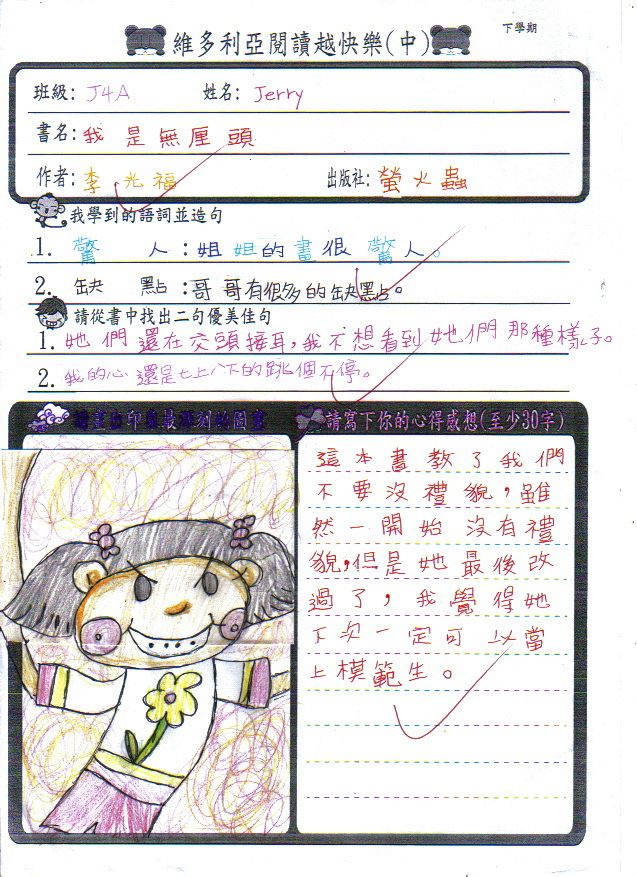 下學期
維多利亞閱讀越快樂(中)
班級: J4A 姓名: Jerry
書名: 我是無厘頭
作者: 李光福 出版社: 螢火蟲
我學到的語詞並造句
1. 驚人:姐姐的畫很驚人。
2. 缺點:哥哥有很多的缺點。
請從書中找出二句優美佳句
1. 她們還在交頭接耳,我不想看到她們那種樣子。
2. 我的心還是七上八下的跳個不停。
請畫出印象最深刻的圖畫
請寫下你的心得感想(至少30字)
這本書教了我們
不要沒禮貌,雖
然一開始沒有禮
貌,但是她最後改
過了,我覺得她
下次一定可以當
上模範生。